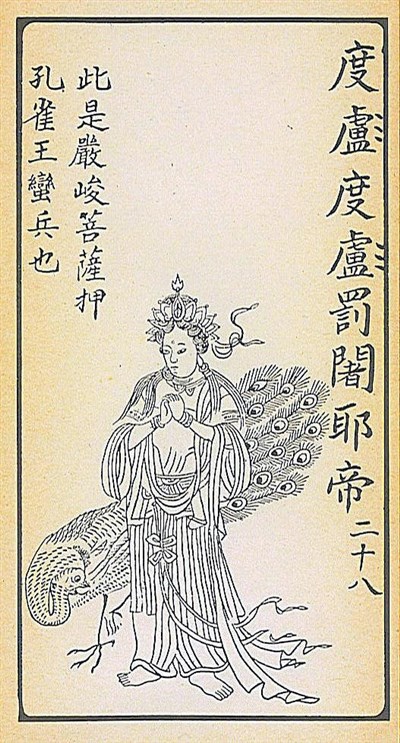 度盧度盧罰闍耶帝二十八
此是嚴峻菩薩押
孔雀王蠻兵也